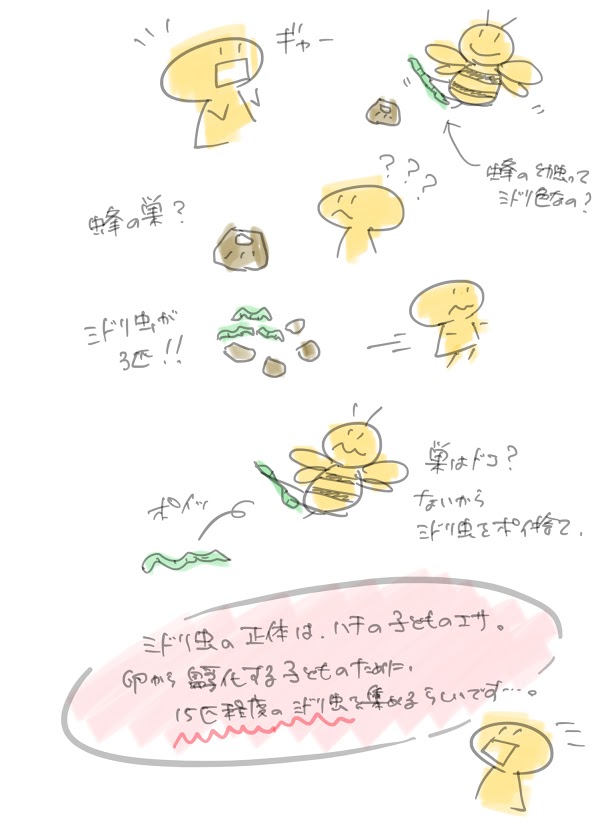 ギャー
蜂の幼虫って
ミドリ色なの?
???
蜂の巣?
ミドリ虫が
3匹!!
巣はドコ?
ないから
ミドリ虫をポイ捨て。
ポイッ
ミドリ虫の正体は、ハチの子どものエサ。
卵から孵化する子どものために、
15匹程度のミドリ虫を集めるらしいです…。